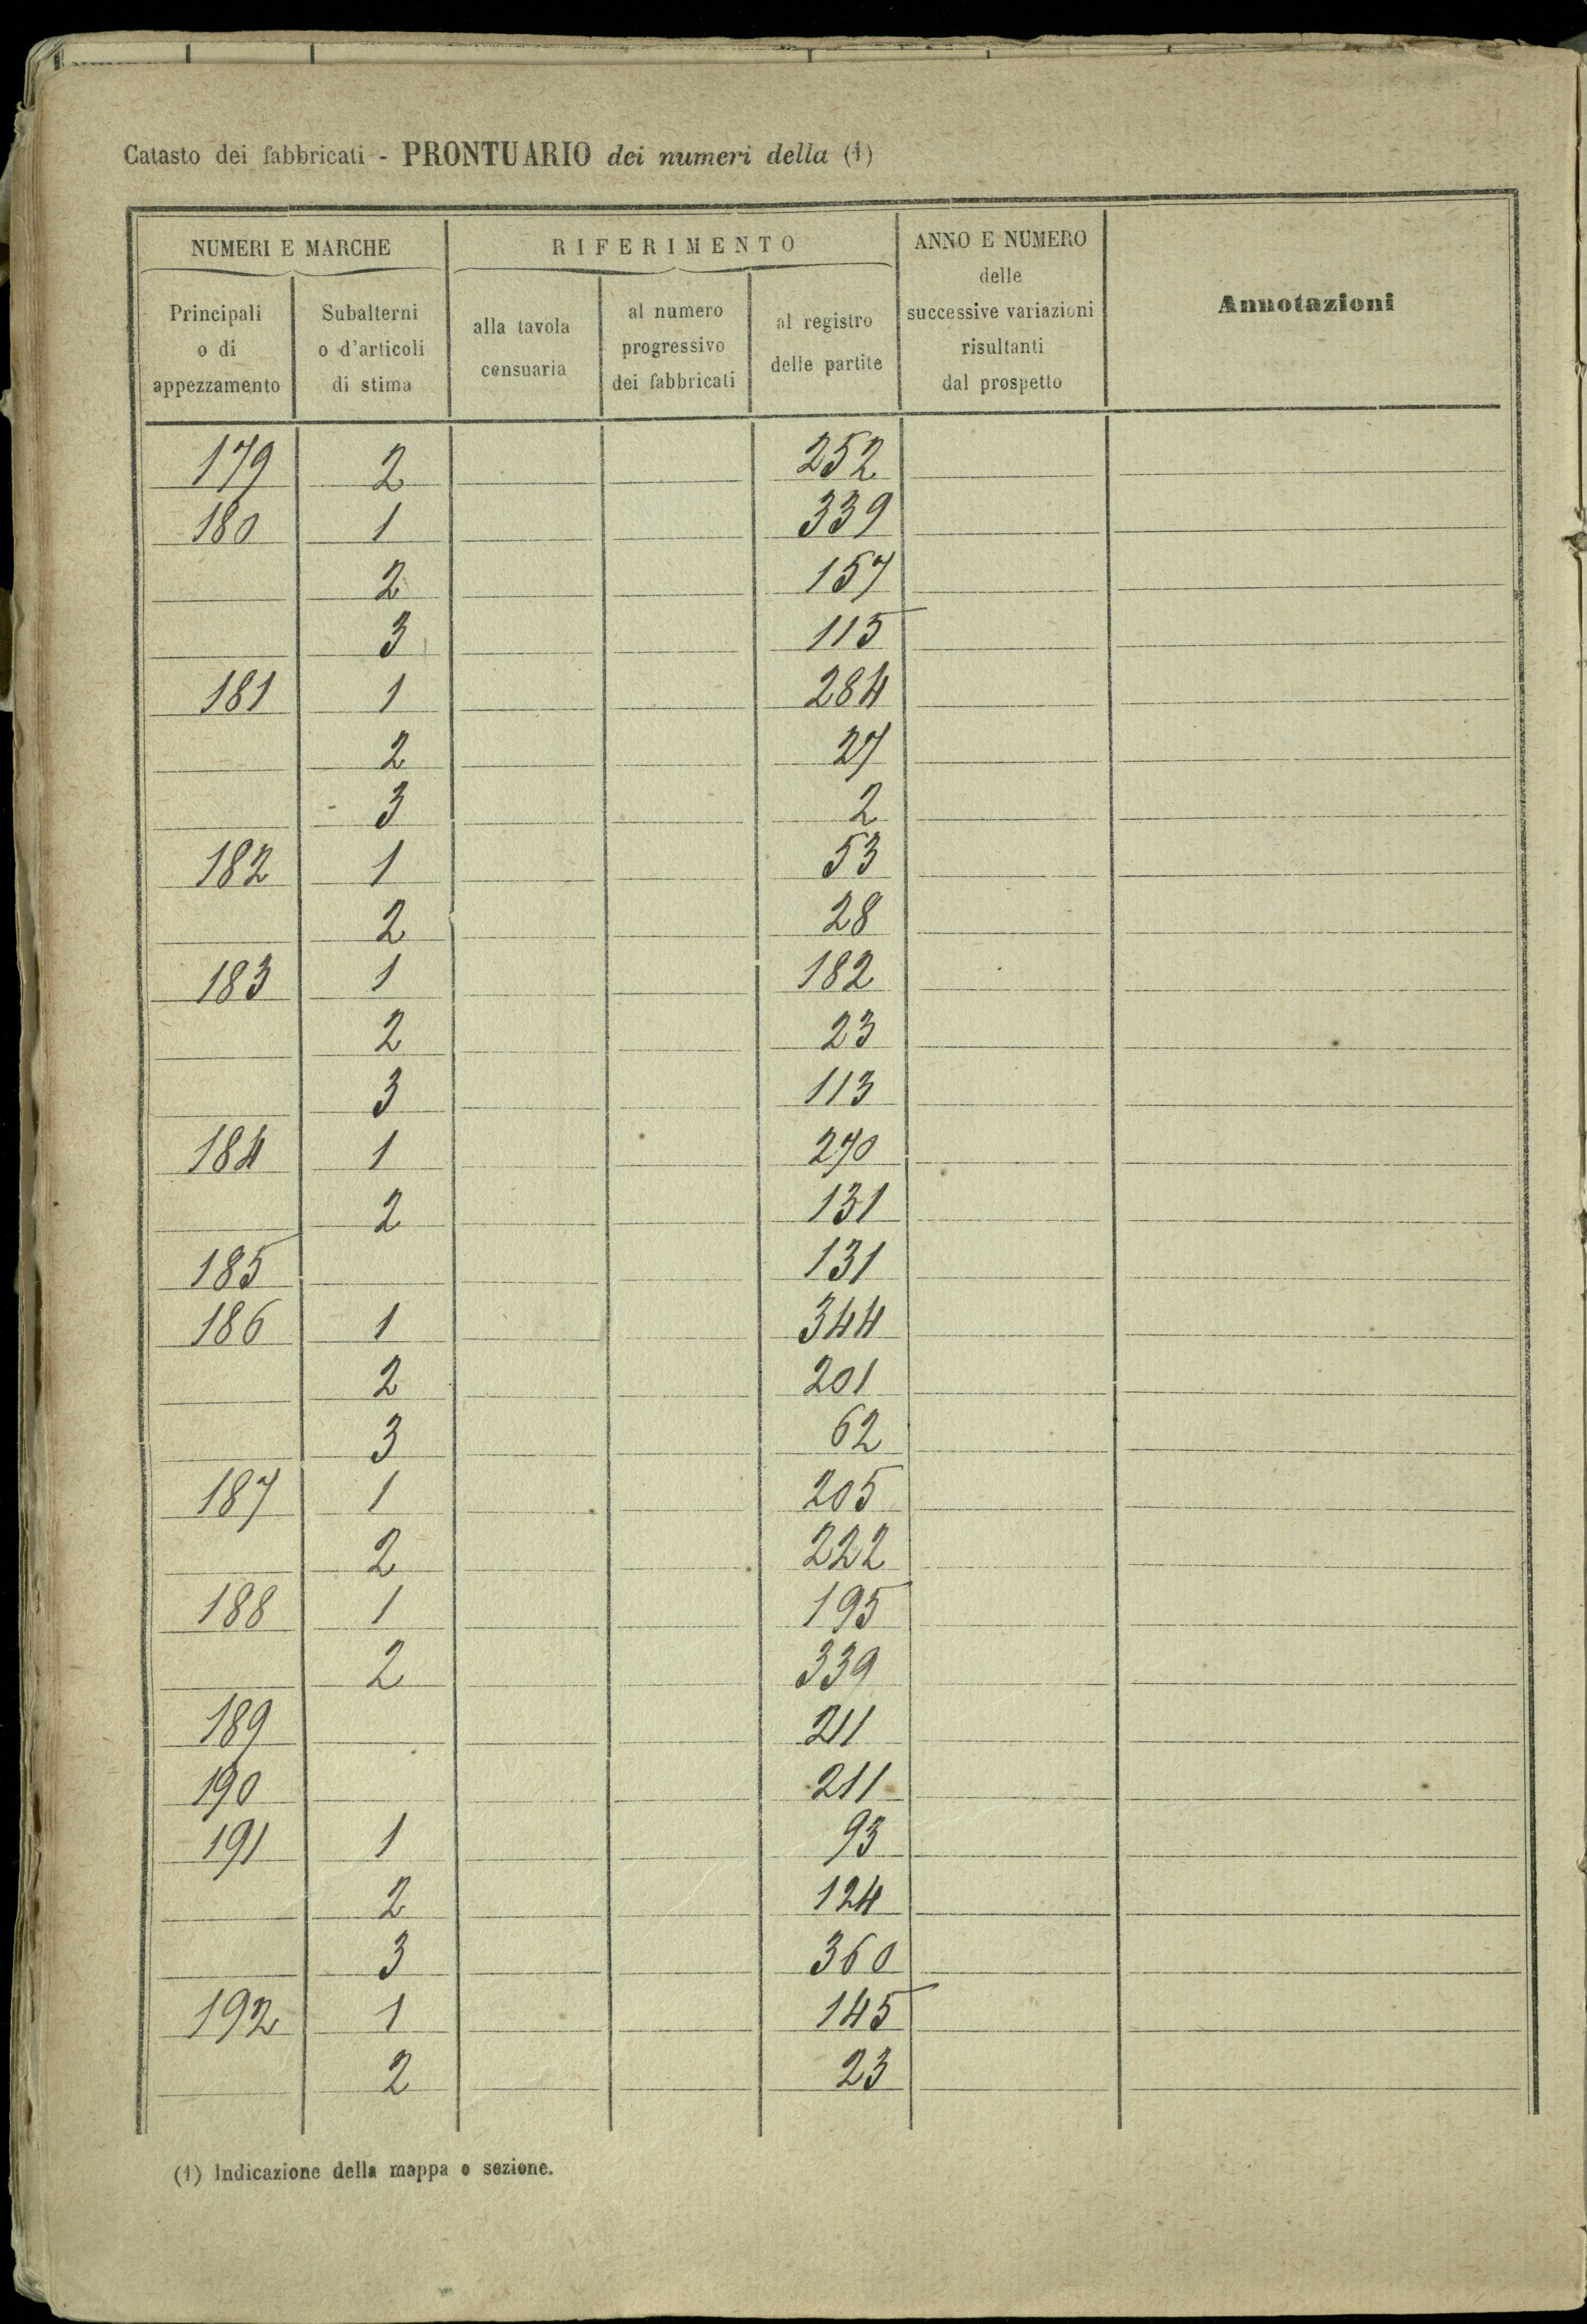 Catasto dei fabbricati - PRONTUARIO dei numeri della (1)
NUMERI E MARCHE
RIFERIMENTO
ANNO E NUMERO
delle
successive variazioni
risultanti
dal prospetto
Annotazioni
Principali
o di
appezzamento
Subalterni
o d'articoli
di stima
alla tavola
censuaria
al numero
progressivo
dei fabbricati
al registro
delle partite
179 2 252
180 1 339
2 157
3 115
181 1 284
2 27
3 2
182 1 53
2 28
183 1 182
2 23
3 113
184 1 270
2 131
185 131
186 1 344
2 201
3 62
187 1 205
2 222
188 1 195
2 339
189 211
190 211
191 1 93
2 124
3 360
192 1 145
2 23
(1) Indicazione della mappa o sezione.